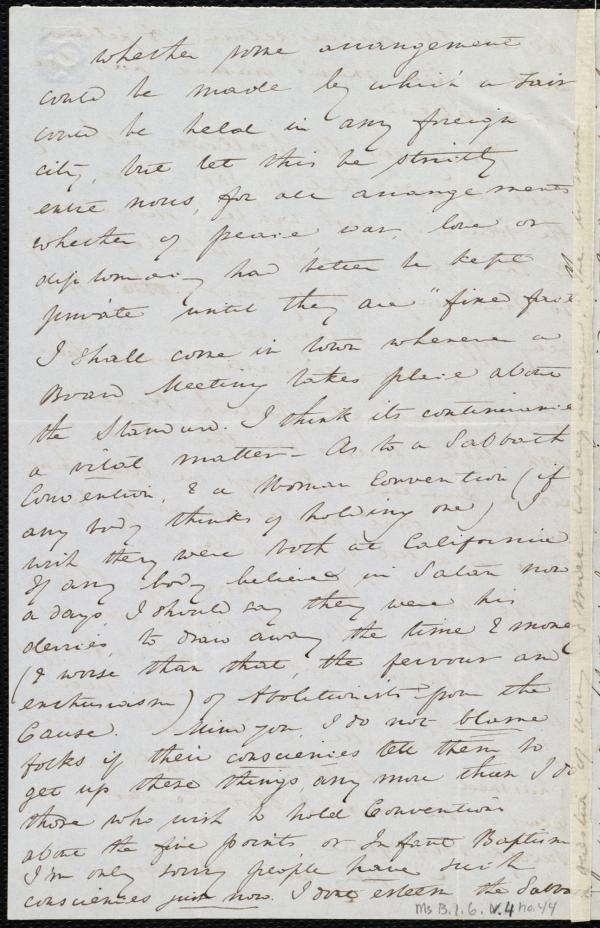 whether some arrangement
could be made by which a Fair
could be held in any foreign
city, but let this be strictly
entre nous, for all arrangements
whether of peace war, love or
diplomacy had better be kept
private until they are "fixed fact
I shall come in town whenever a
Board Meeting takes place about
the Standard. I think its continuance
a vital matter - As to a Sabbath
Convention, & a Woman Convention (if
any body thinks of holding one) I
wish they were both at California
If any body believed in Satan now
a days, I should say they were his
devices to draw away the time & money
(& worse than that, the fervour and
enthusiasm) of Abolitionists from the
Cause. Mind you, I do not blame
folks if their consciences tell them to
get up these things, any more than I do
those who wish to hold Conventions
about the five points or Infant Baptism
I'm only sorry people have such
consciences just now. I don't esteem the Sabba
Ms B.1.6. v.4 no.44